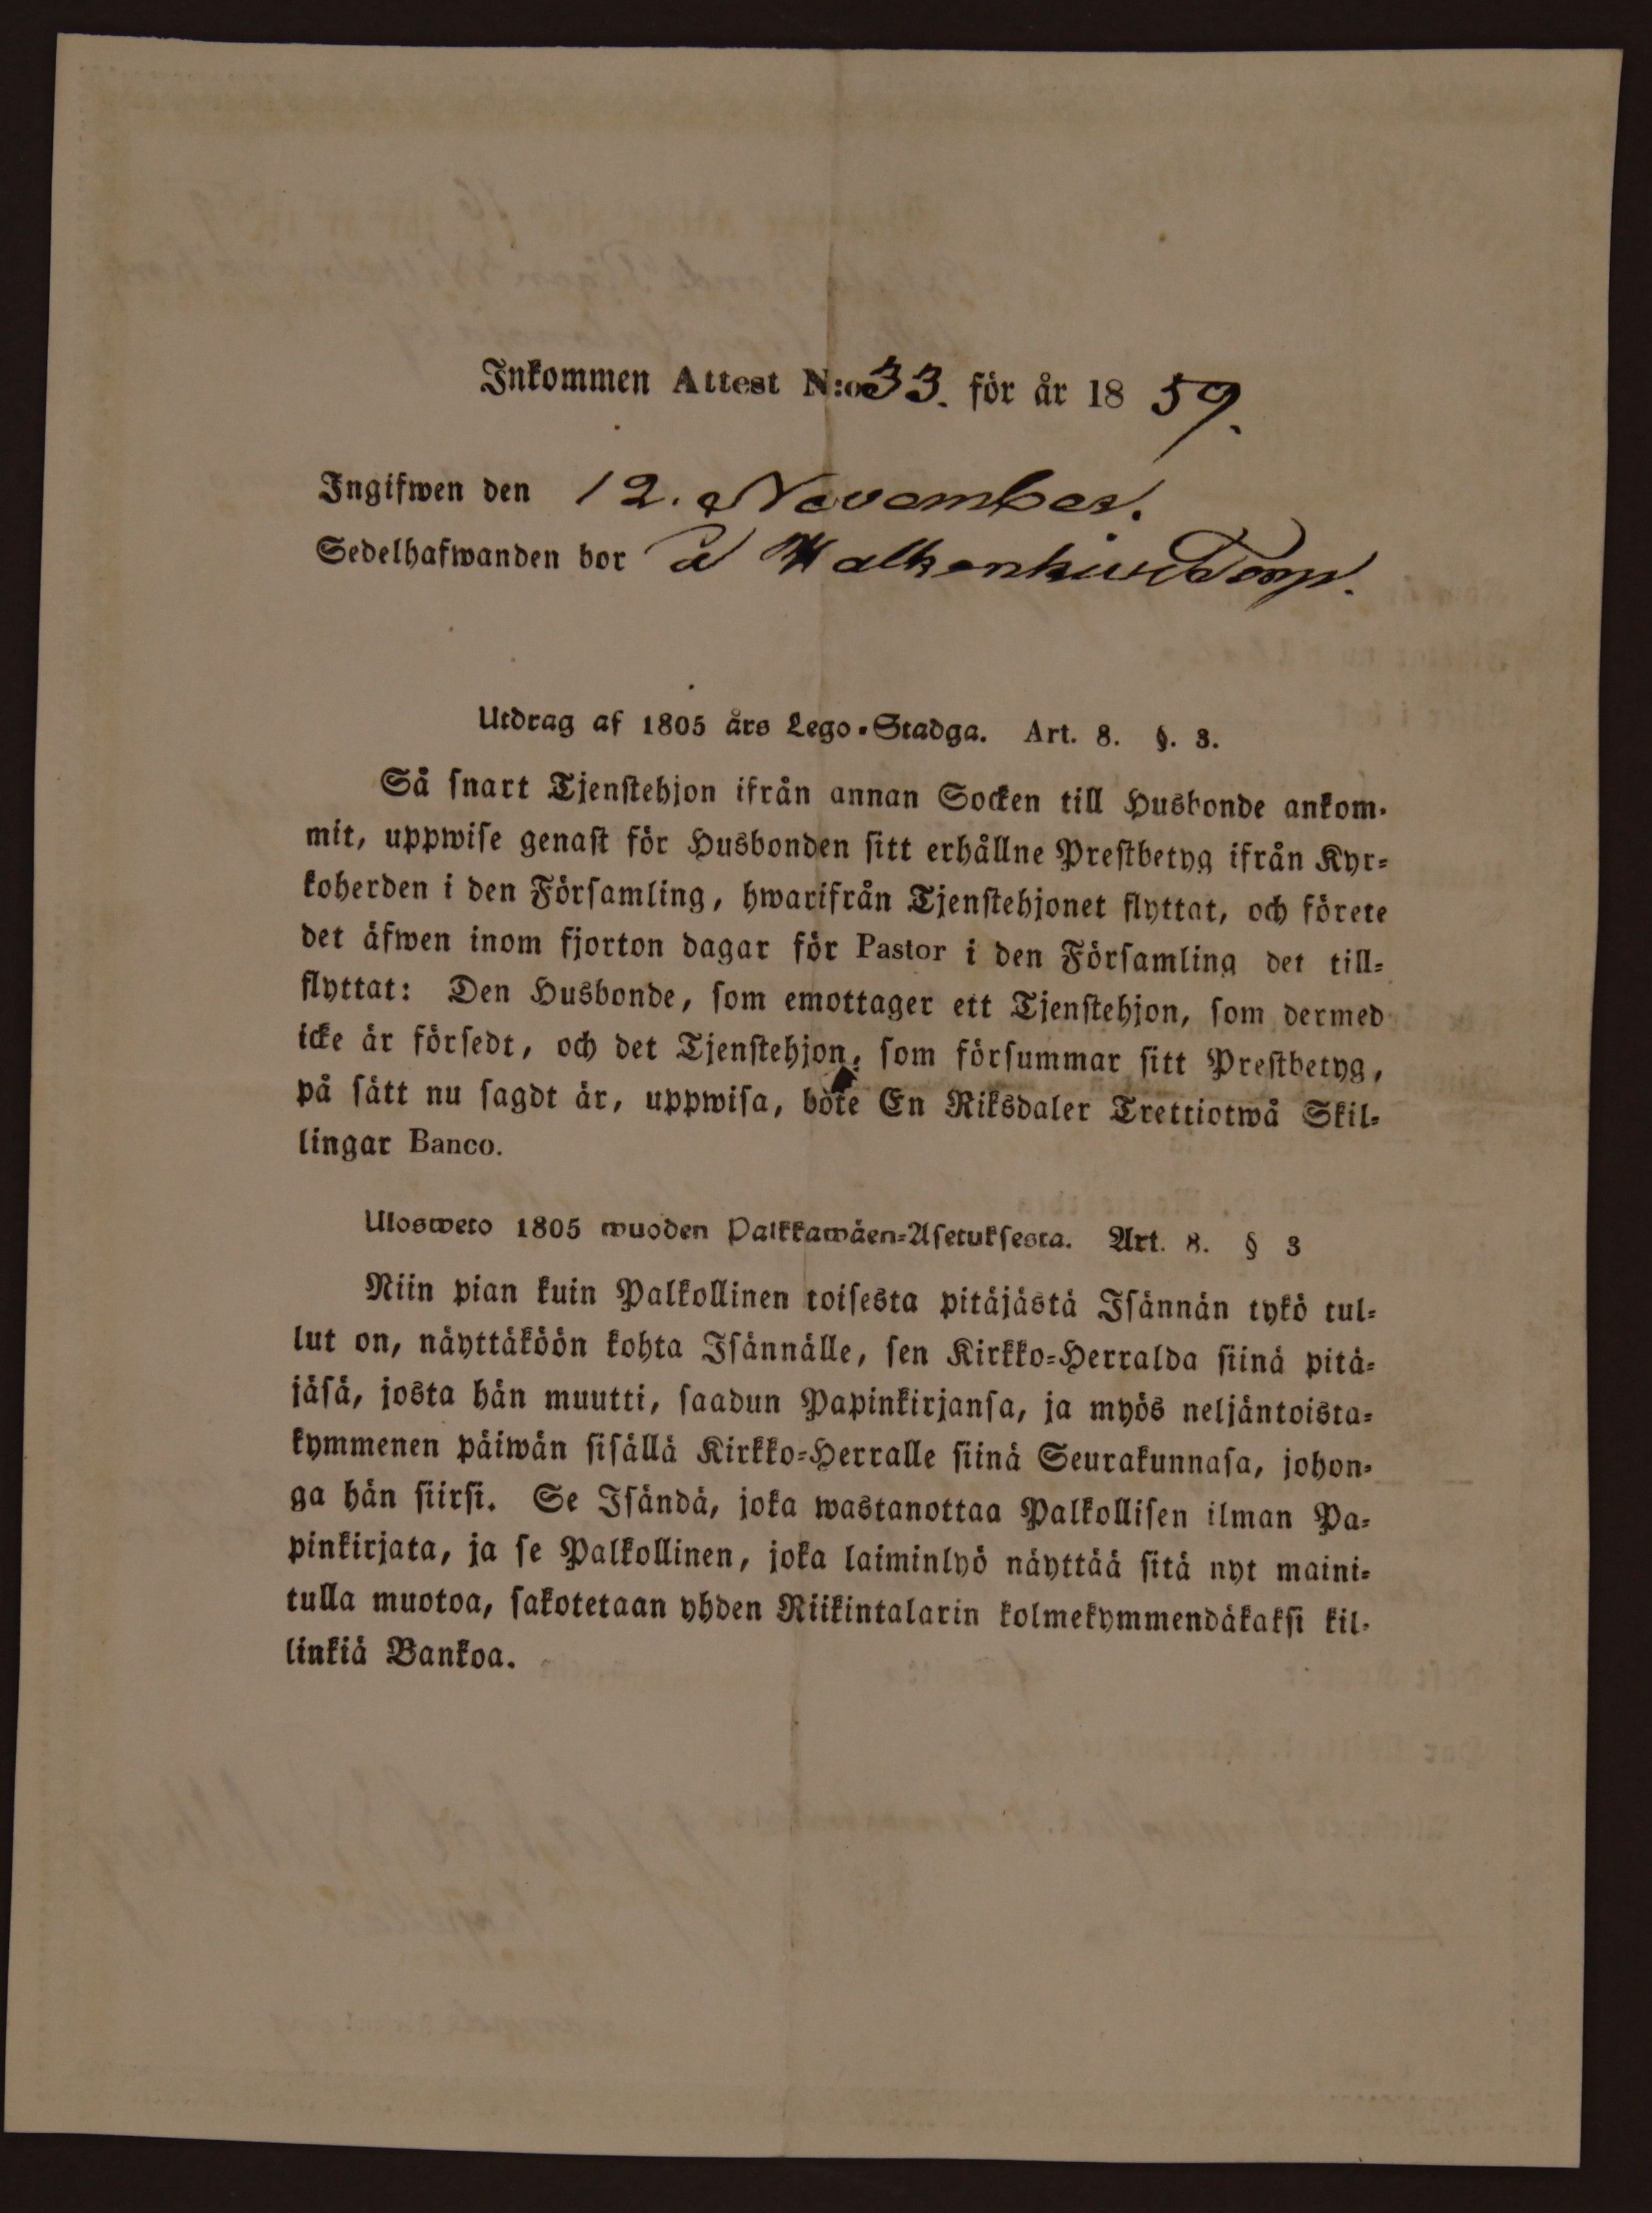 Inkommen Attest N:o 33. för år 18 59.
Ingifwen den 12. November.
Sedelhafwanden bor å Torp.
Utdrag af 1805 års Lego-Stadga. Art. 8. §. 3.
Så snart Tjenstehjon ifrån annan Socken till Husbonde ankom-
mit, uppwise genast för Husbonden sitt erhållne Prestbetyg ifrån Kyr-
koherden i den Församling, hwarifrån Tjenstehjonet flyttat, och förete
det äfwen inom fjorton dagar för Pastor i den Församling det till-
flyttat: Den Husbonde, som emottager ett Tjenstehjon, som dermed
icke är försedt, och det Tjenstehjon, som försummar sitt Prestbetyg,
på sätt nu sagdt är, uppwisa, böte En Riksdaler Trettiotwå Skil-
lingar Banco.
Ulosweto 1805 wuoden Palkkawäen-Asetuksesta. Art. 8. § 3
Niin pian kuin Palkollinen toisesta pitäjästä Isännän tykö tul-
lut on, näyttäköön kohta Isännälle, sen Kirkko-Herralda siinä pitä-
jäsä, josta hän muutti, saadun Papinkirjansa, ja myös neljäntoista-
kymmenen päiwän sisällä Kirkko-Herralle siinä Seurakunnasa, johon-
ga hän siirsi. Se Isändä, joka wastanottaa Palkollisen ilman Pa-
pinkirjata, ja se Palkollinen, joka laiminlyö näyttää sitä nyt maini-
tulla muotoa, sakotetaan yhden Riikintalarin kolmekymmendäkaksi kil-
linkiä Bankoa.